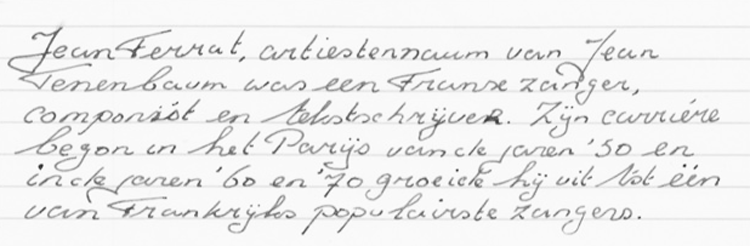 Jean Ferrat, artiestennaam van Jean
Tenenbaum was een Franse zanger,
componist en tekstschrijver. Zijn carriére
begon in het Parijs van de jaren '50 en
in de jaren '60 en '70 groeide hij uit tot één
van Frankrijks populairste zangers.